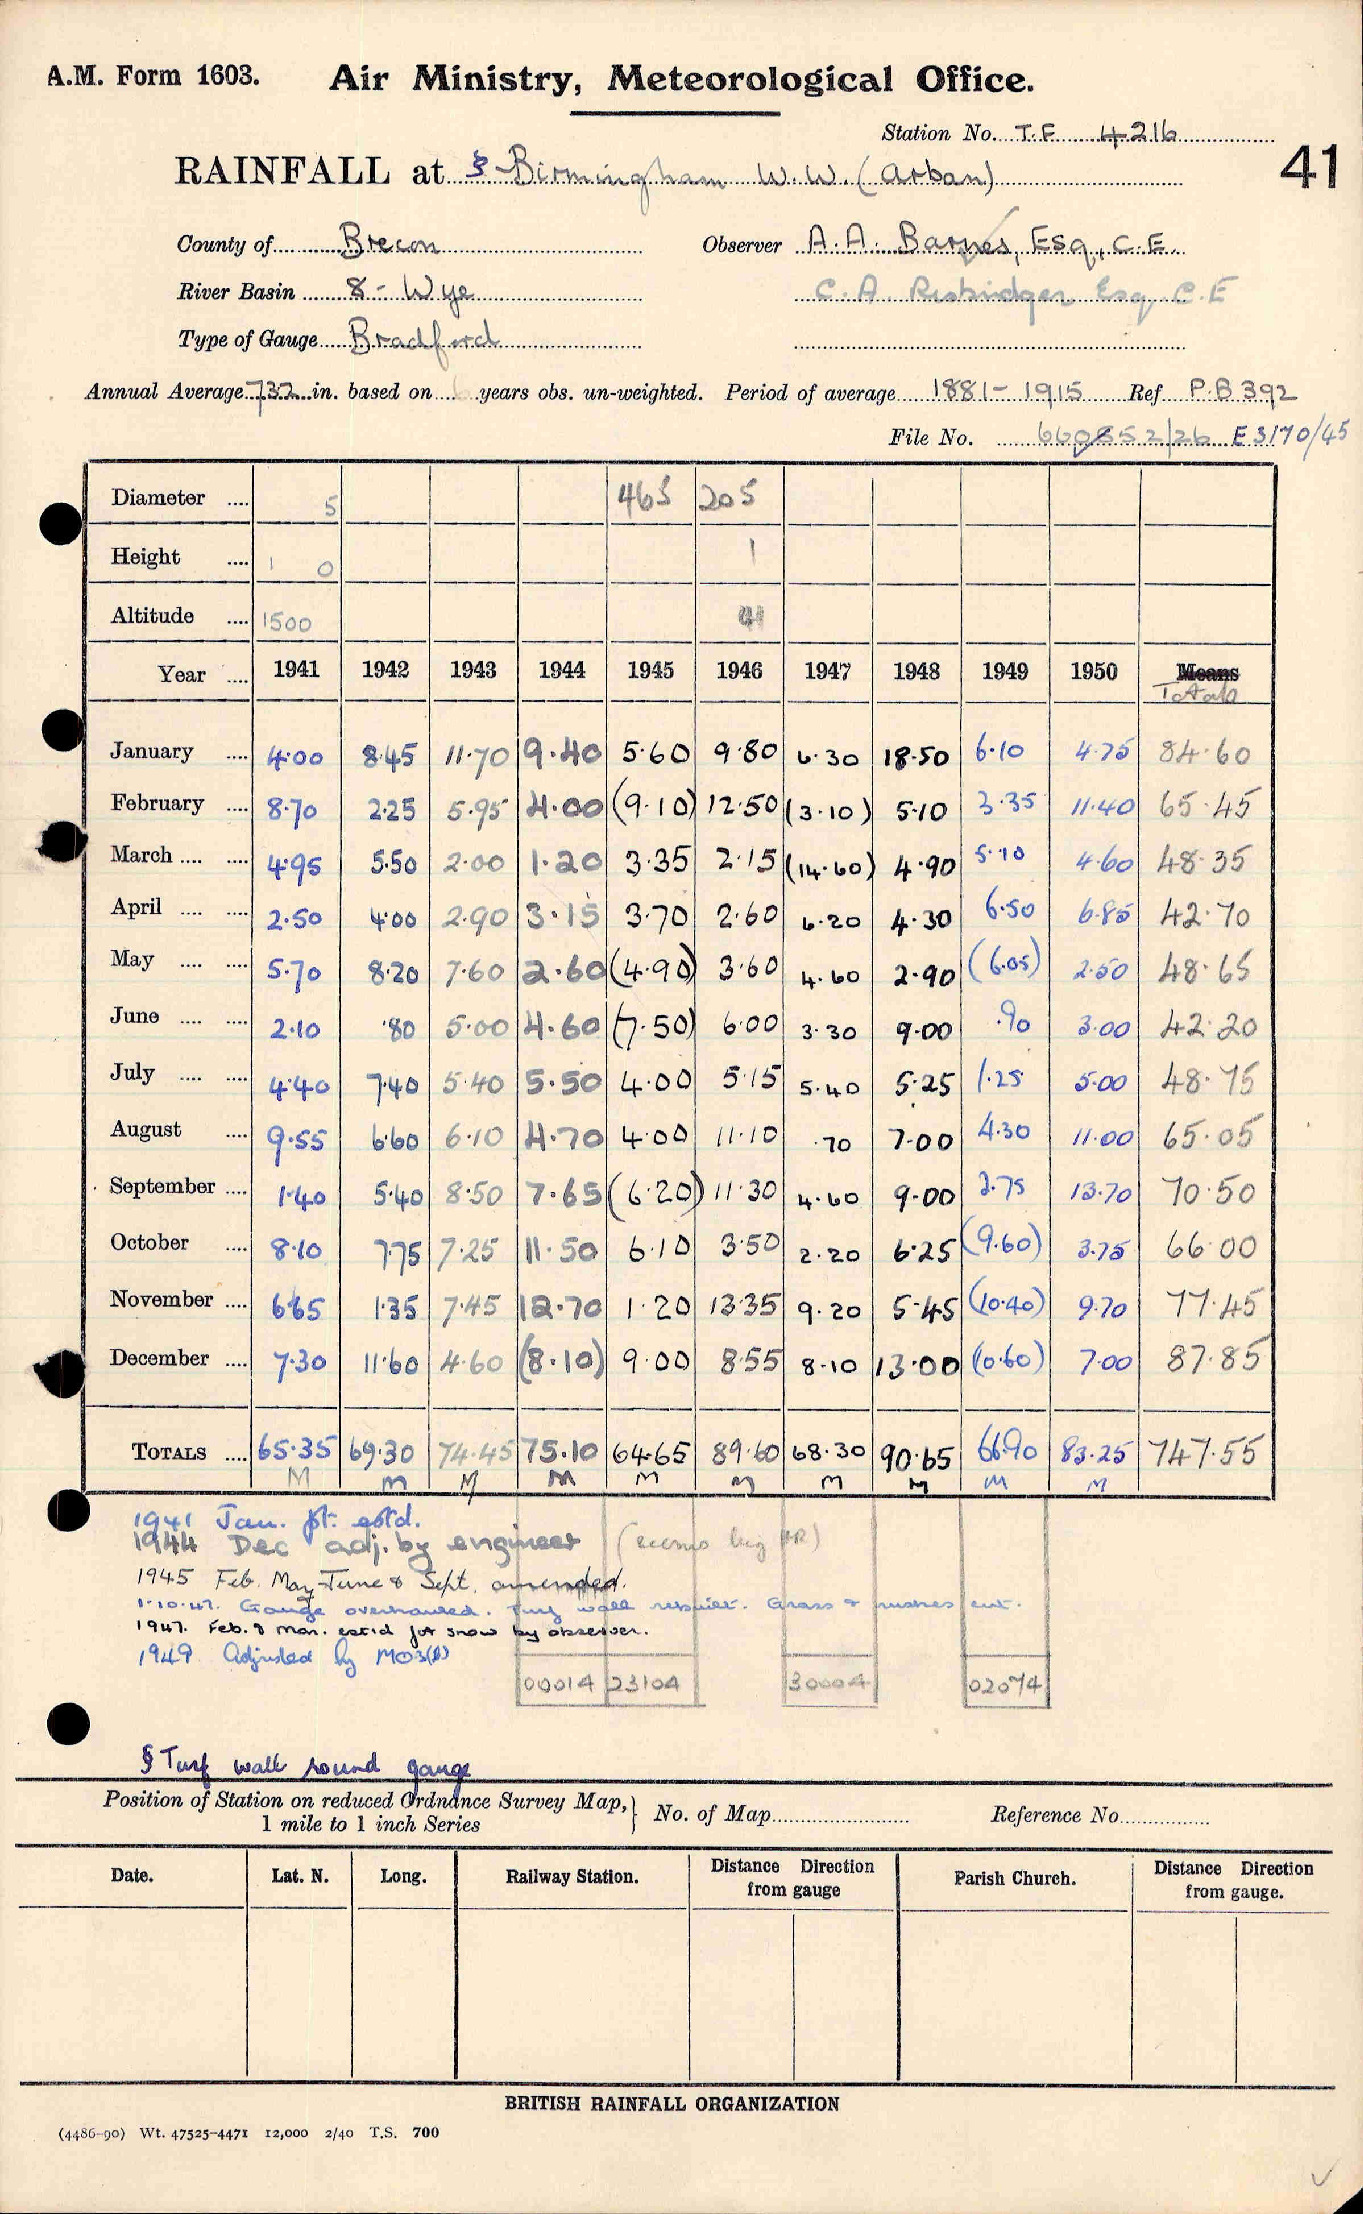 A.M. Form 1603. Air Ministry, Meteorological Office.
Station No. T.F 4216
41
RAINFALL at § Birmingham W.W. (Arban)
County of Brecon Observer A.A. Barnes, Esq., C.E.
River Basin 8 - Wye C.A. Risbridger Esq C.E
Type of Gauge Bradford
Annual Average 73.2 in. based on 6 years obs. un-weighted. Period of average 1881-1915 Ref P.B 392
File No. E3170/45
Diameter .... 5 463 205
Height .... 1 0 1
Altitude .... 1500
Year .... 1941 1942 1943 1944 1945 1946 1947 1948 1949 1950 Means
Totals
January .... 4.00 8.45 11.70 9.40 5.60 9.80 6.30 18.50 6.10 4.75 84.60
February .... 8.70 2.25 5.95 4.00 (9.10) 12.50 (3.10) 5.10 3.35 11.40 65.45
March .... .... 4.95 5.50 2.00 1.20 3.35 2.15 (14.60) 4.90 5.10 4.60 48.35
April .... .... 2.50 4.00 2.90 3.15 3.70 2.60 6.20 4.30 6.50 6.85 42.70
May .... .... 5.70 8.20 7.60 2.60 (4.90) 3.60 4.60 2.90 (6.05) 2.50 48.65
June .... .... 2.10 .80 5.00 4.60 (7.50) 6.00 3.30 9.00 .90 3.00 42.20
July .... .... 4.40 7.40 5.40 5.50 4.00 5.15 5.40 5.25 1.25 5.00 48.75
August .... 9.55 6.60 6.10 4.70 4.00 11.10 .70 7.00 4.30 11.00 65.05
September .... 1.40 5.40 8.50 7.65 (6.20) 11.30 4.60 9.00 2.75 13.70 70.50
October .... 8.10 7.75 7.25 11.50 6.10 3.50 2.20 6.25 (9.60) 3.75 66.00
November .... 6.65 1.35 7.45 12.70 1.20 13.35 9.20 5.45 (10.40) 9.70 77.45
December .... 7.30 11.60 4.60 (8.10) 9.00 8.55 8.10 13.00 (10.60) 7.00 87.85
TOTALS .... 65.35 69.30 74.45 75.10 64.65 89.60 68.30 90.65 66.90 83.25 747.55
M M M M M M M M M M
1941 Jan. pt. estd.
1944 Dec adj. by engineer (seems big)
1945 Feb. May June & Sept. amended.
1.10.47. Gauge overhauled. Turf wall rebuilt. Grass & rushes cut.
1947. Feb. & Mar. est'd for snow by observer.
1949 Adjusted by MO3(B)
00014 23104 30004 02074
§ Turf wall round gauge
Position of Station on reduced Ordnance Survey Map,} No. of Map Reference No.
1 mile to 1 inch Series
Date. Lat. N. Long. Railway Station. Distance Direction from gauge Parish Church. Distance Direction from gauge.
BRITISH RAINFALL ORGANIZATION
(4486-90) Wt. 47525-4471 12,000 2/40 T.S. 700